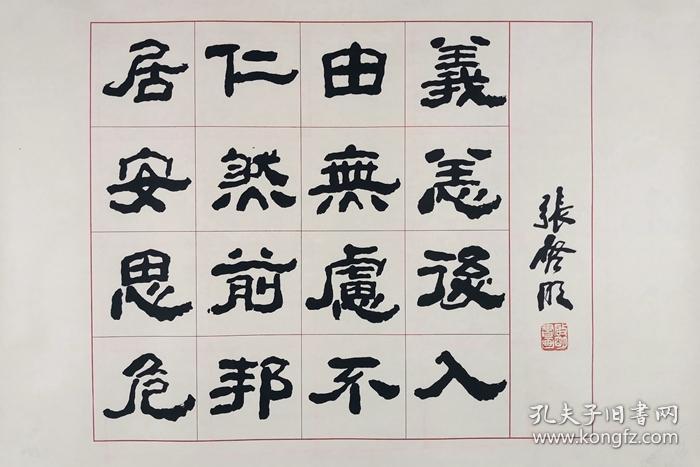 居仁由義
安然無恙
思前慮後
危邦不入
張啓明
孔夫子旧书网
www.kongfz.com